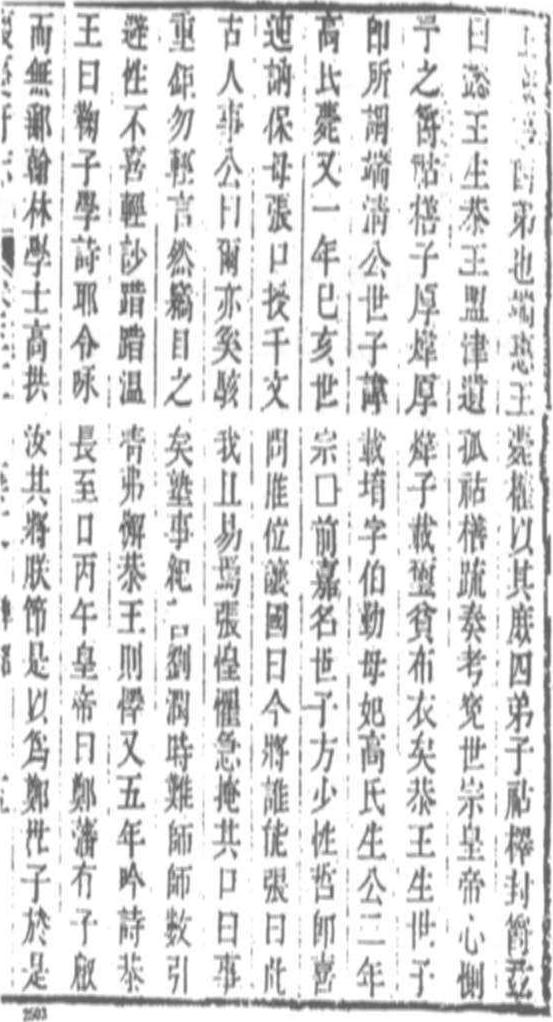 弟也端惠王薨權以其庶四弟子祐檡封爵茲
曰懿王生恭王盟津遺孤祐橏疏奏考冤世宗皇帝心惻
予之爵祐橏子厚煒原煒子載璽貧布衣矣恭王生世子
即所謂端清公世子諱載堉字伯勤母妃高氏生公二年
高氏薨又一年己亥世宗口前嘉名世子方少性哲即喜
連誦保母張口授千文問推位讓國曰今將誰能張曰此
古人事公曰爾亦矣駭我且易焉張惶懼急掩其口曰事
重鉅勿輕言然竊目之矣塾事紀劉潤時難師師數引
遜性不喜輕訬踖踖溫青弗懈恭王則懌又五年吟詩恭
王曰鞠子學詩耶令咏長至口丙午皇帝曰鄭藩有子啟
而無鄙翰林學士高拱汝其將朕節是以為鄭世子於是
2503